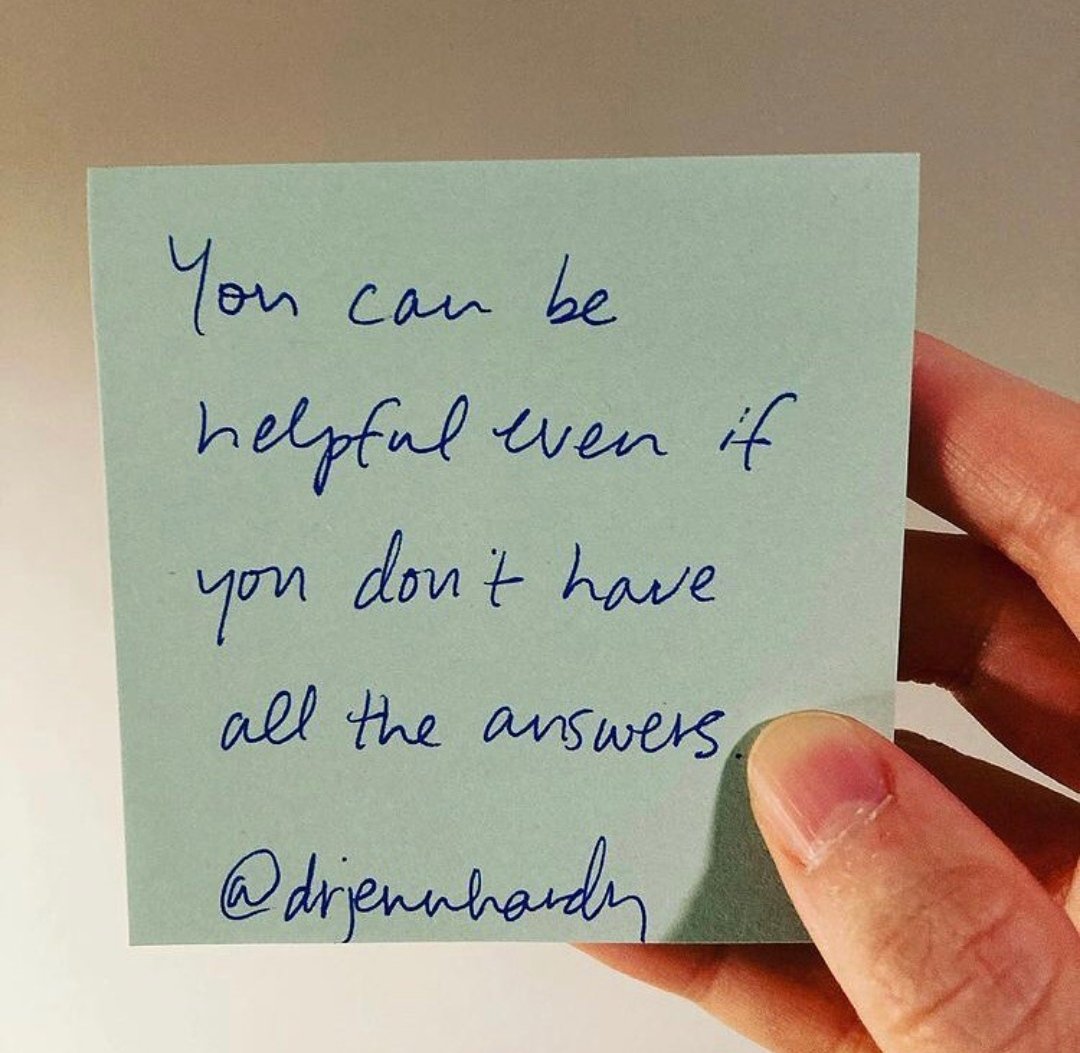 You can be
helpful even if
you don't have
all the answers.
@drjennhardy